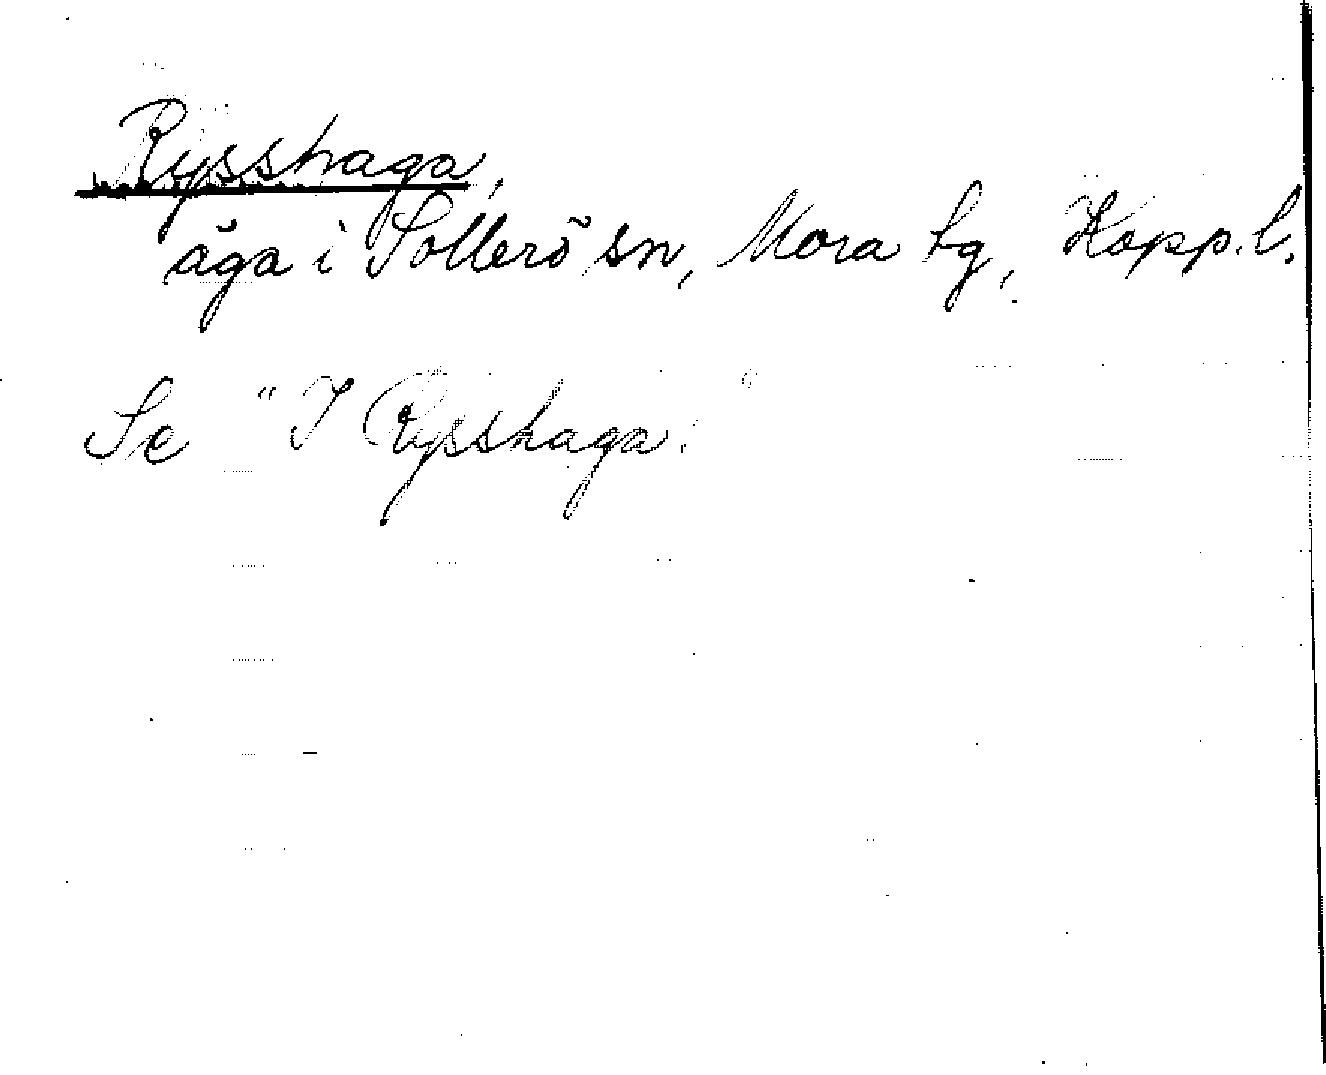 Rysshaga,
äga i Sollerö sn, Mora tg, Kopp.l.
Se "I Rysshaga."